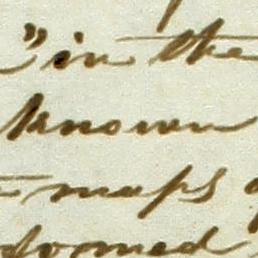 " in the
known
maps
formed